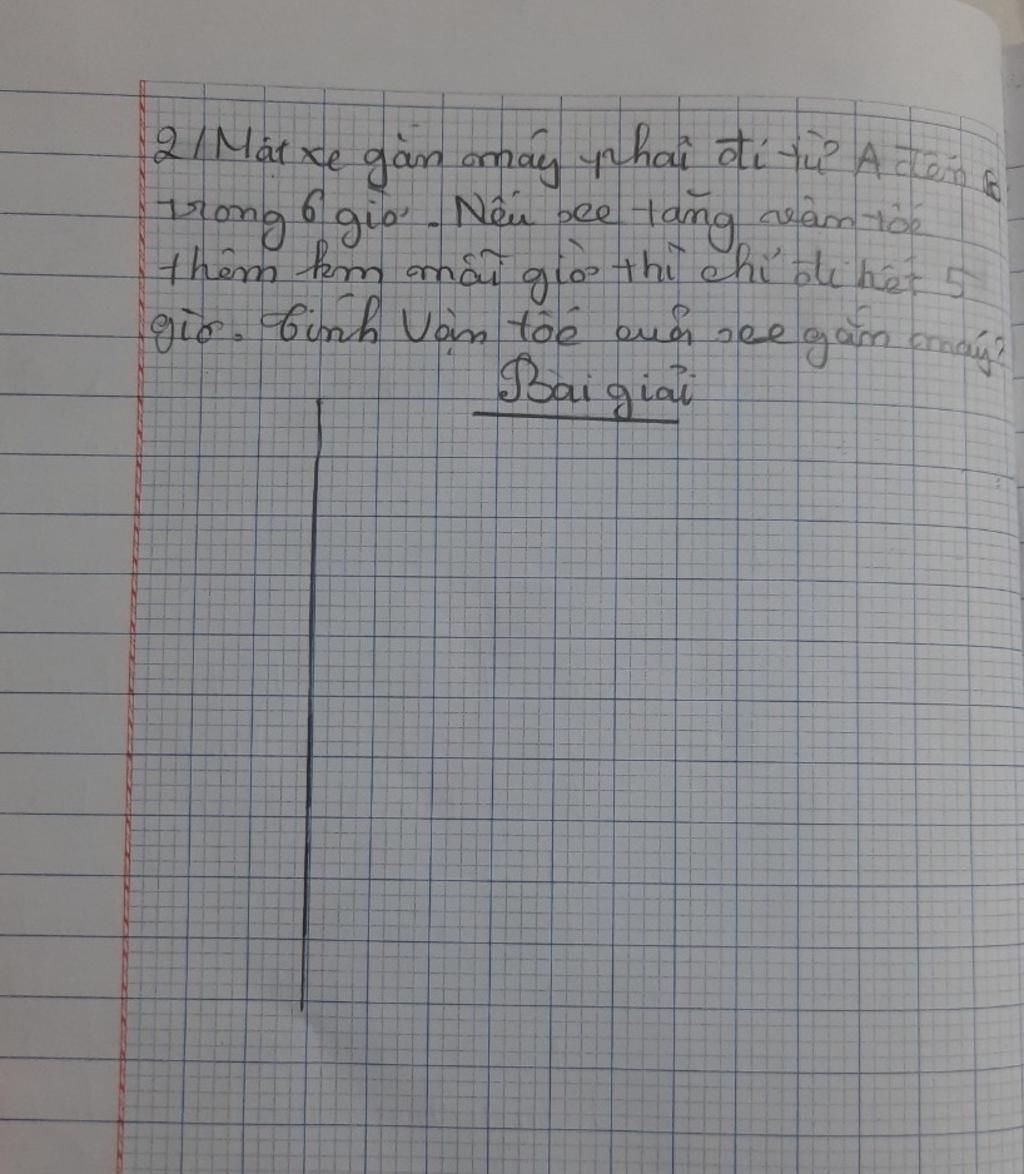 2/ Một xe gắn máy phải đi từ A đến B
trong 6 giờ. Nếu xe tăng vận tốc
thêm km mỗi giờ thì chỉ đi hết 5
giờ. Tính Vận tốc của xe gắn máy?
Bài giải